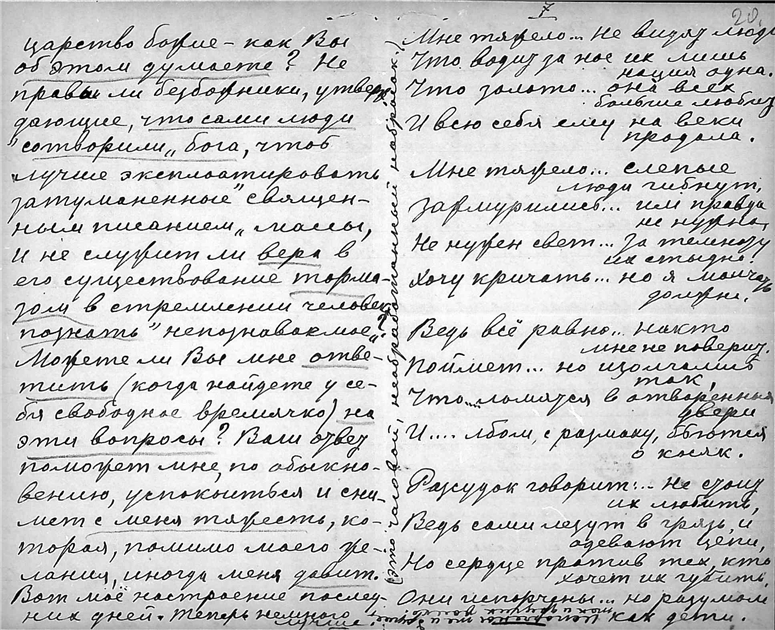 царство божие – как Вы
об этом думаете? Не
правы ли безбожники, утвер-
ждающие, что сами люди
"сотворили" бога, чтоб
"лучше эксплоатировать
затуманенные" священ-
ным писанием "массы",
и не служит ли вера в
его существование тормо-
зом в стремлении человек
познать "непознаваемое"?
Можете ли Вы мне отве-
тить (когда найдете у се-
бя свободное времячко) на
эти вопросы? Ваш ответ
поможет мне, по обыкно-
вению, успокоиться и сни-
мет с меня тяжесть, ко-
торая, помимо моего же-
лания, иногда меня давит.
Вот моё настроение послед-
них дней. Теперь немного
лучше.
(это часовой, необработанный набросок)
7
28.
Мне тяжело... не видят люди
Что водит за нос их лишь
нация одна.
Что золото... она всех
больше любит
И всю себя ему на веки
продала.
Мне тяжело... слепые
люди гибнут,
Зажмурились... им правда
не нужна,
Не нужен свет... за темноту
их стыдно.
Хочу кричать... но я молчать
должна.
Ведь всё равно... никто
мне не поверит.
Поймет... но изолгались
так,
Что... ломятся в отворенные
двери
И.... лбом, с размаху, бьются
о косяк.
Рассудок говорит... не стоит
их любить,
Ведь сами лезут в грязь, и
одевают цепи,
Но сердце против тех, кто
хочет их губить.
Они испорчены... но разумом
как дети.